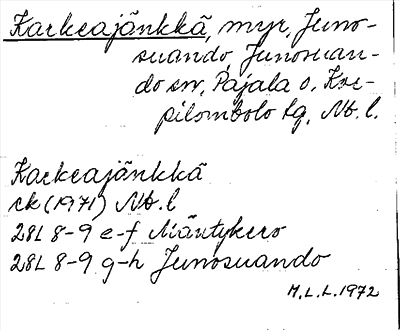 Karkeajänkkä, myr, Juno-
suando, Junosuan-
do sn, Pajala o. Kor-
pilombolo tg, Nb. l.
Karkeajänkkä
rk (1971) Nb. l
28L 8-9 e-f Mäntykero
28L 8-9 g-h Junosuando
M.L.L. 1972